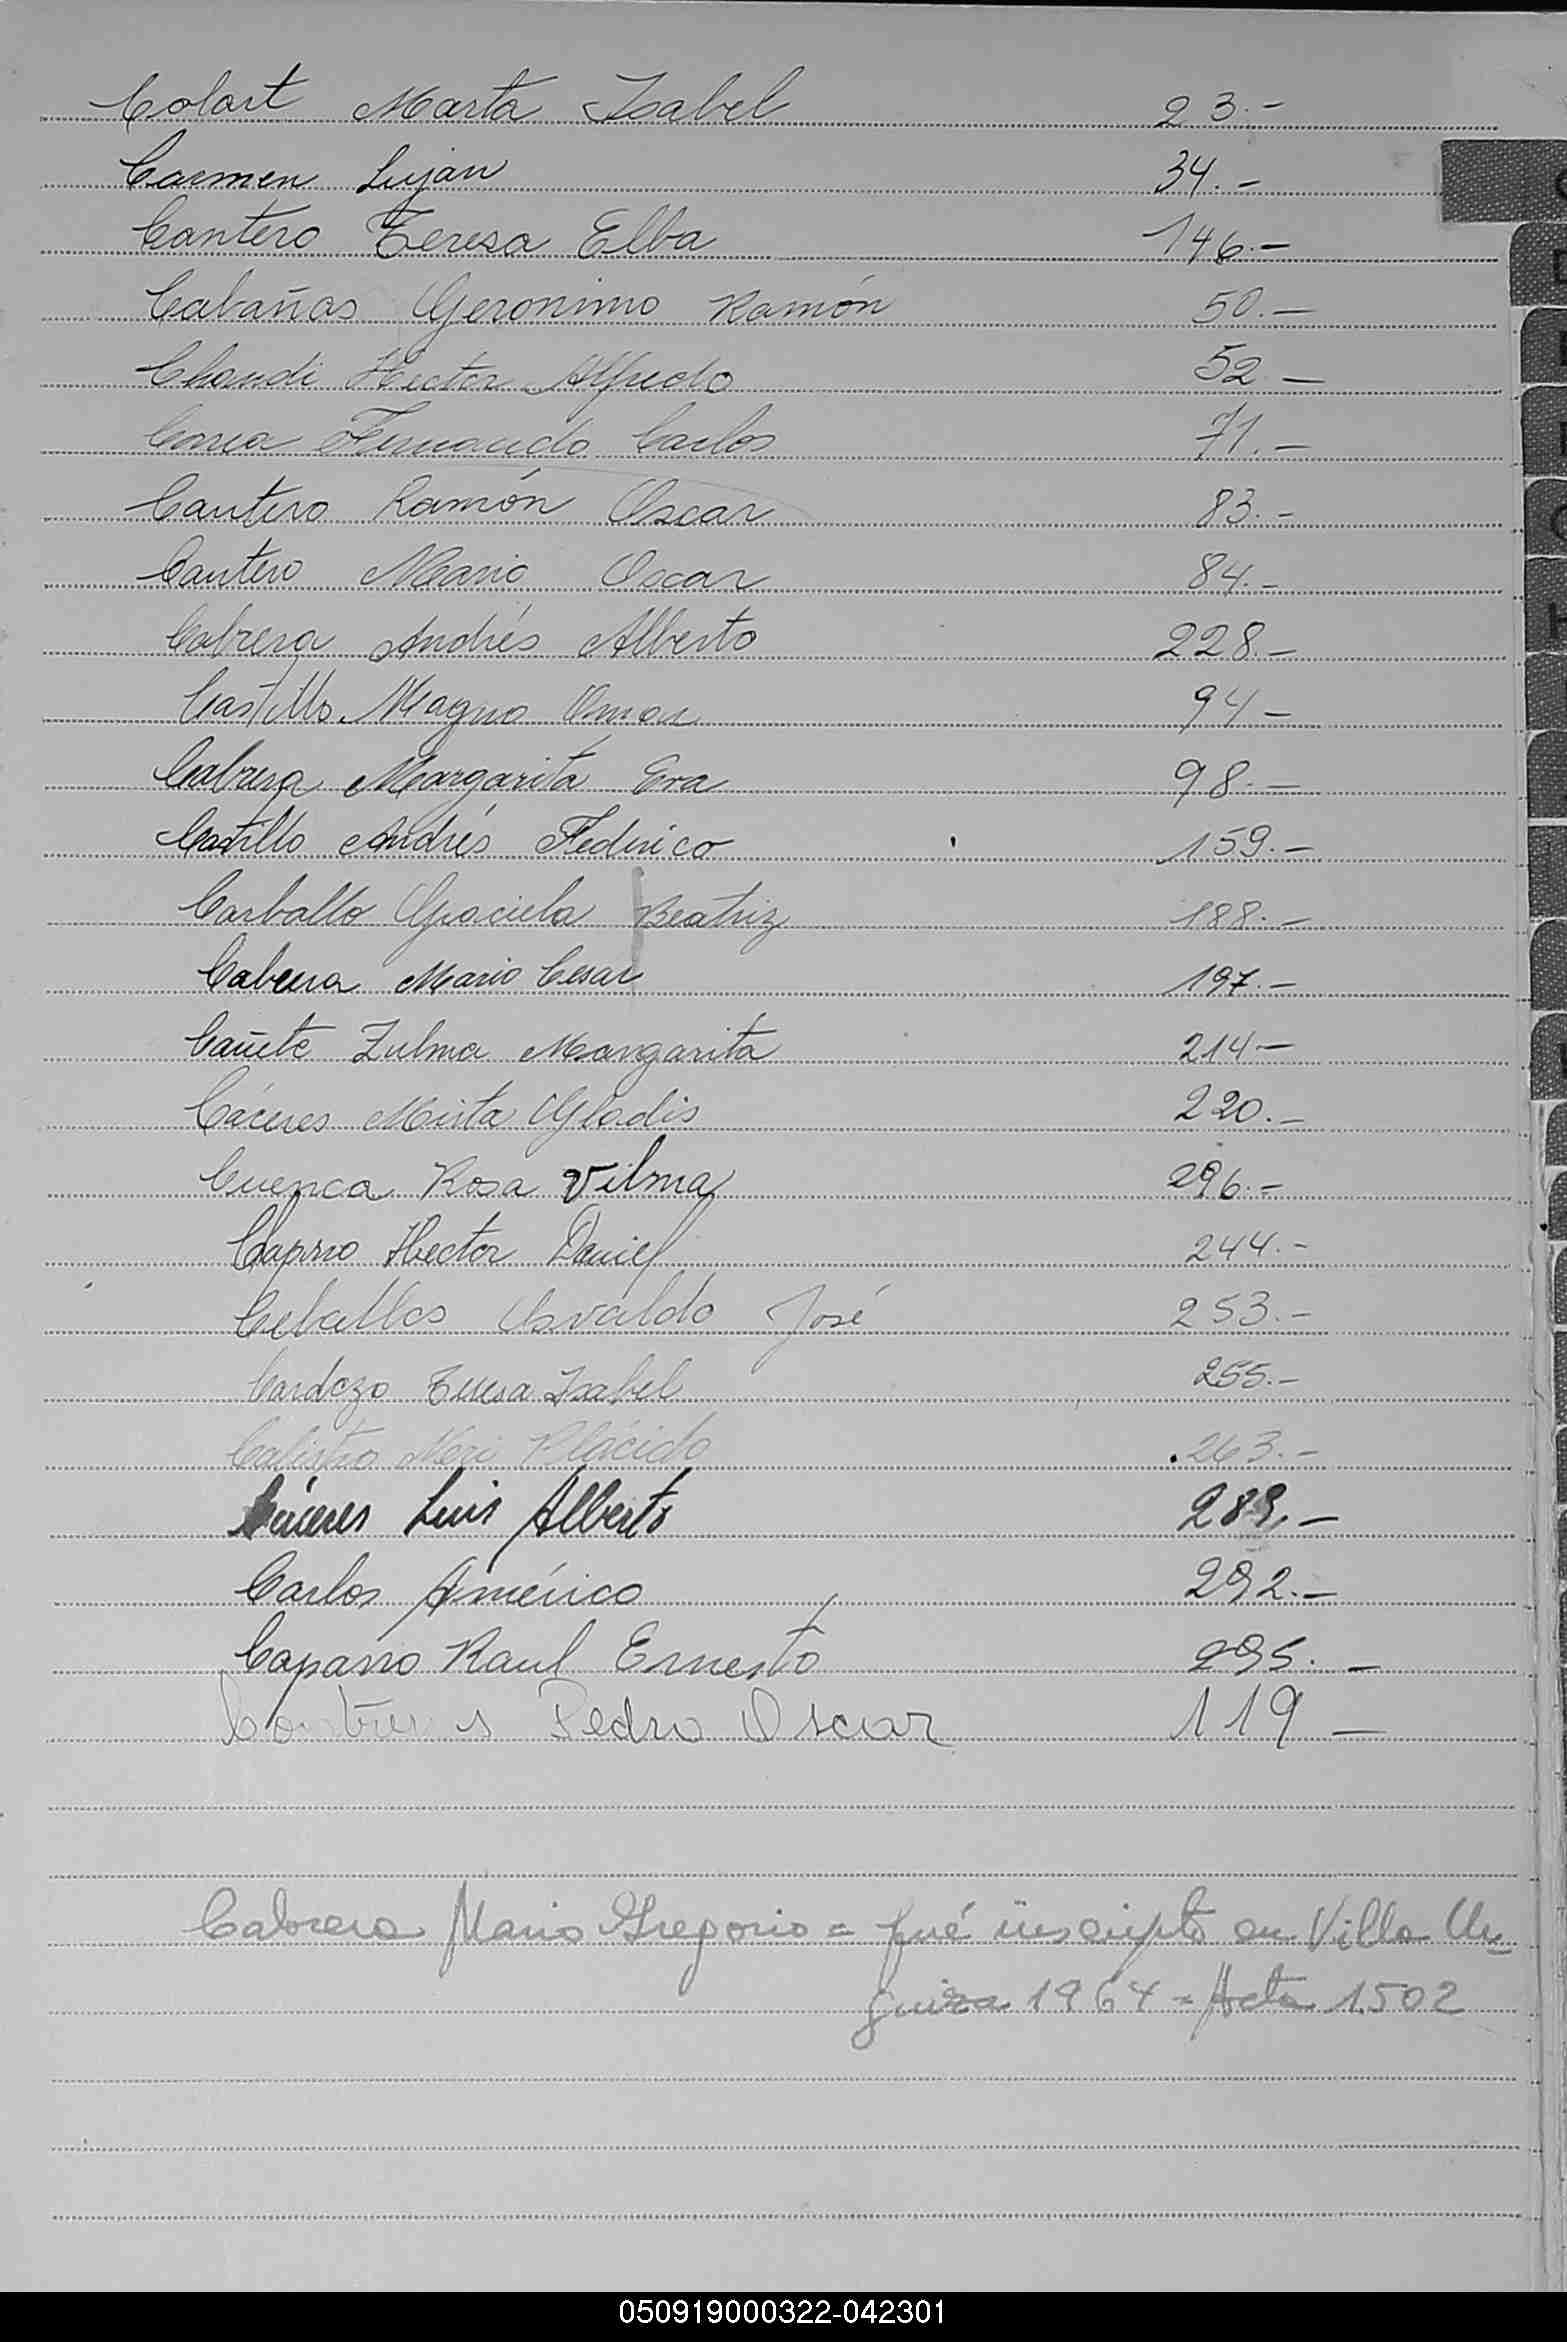 Colart Marta Isabel 23.-
Carmen Lujan 34.-
Cantero Teresa Elba 146.-
Cabañas Geronimo Ramón 50.-
Chandi Hector Alfredo 52.-
Fernando Carlos 71.-
Cantero Ramón Oscar 83.-
Cantero Mario Oscar 84.-
Cabrera Andrés Alberto 228.-
Castillo Magno Omar 94-
Cabrera Margarita Eva 98.-
Castillo Andrés Federico 159.-
Carballo Graciela Beatriz 188.-
Cabrera Mario Cesar 197.-
Cañete Zulma Margarita 214-
Cáceres Mirta Gladis 220.-
Cuenca Rosa Vilma 296.-
Hector Daniel 244.-
Ceballos Osvaldo José 253.-
Cardozo Teresa Isabel 255.-
Calistro Plácido 263.-
Cáceres Luis Alberto 289.-
Carlos Américo 292.-
Caparro Raul Ernesto 295.-
Pedro Oscar 119-
Cabrera Mario Gregorio = fué inscripto en Villa
1964 = Acta 1502
050919000322-042301